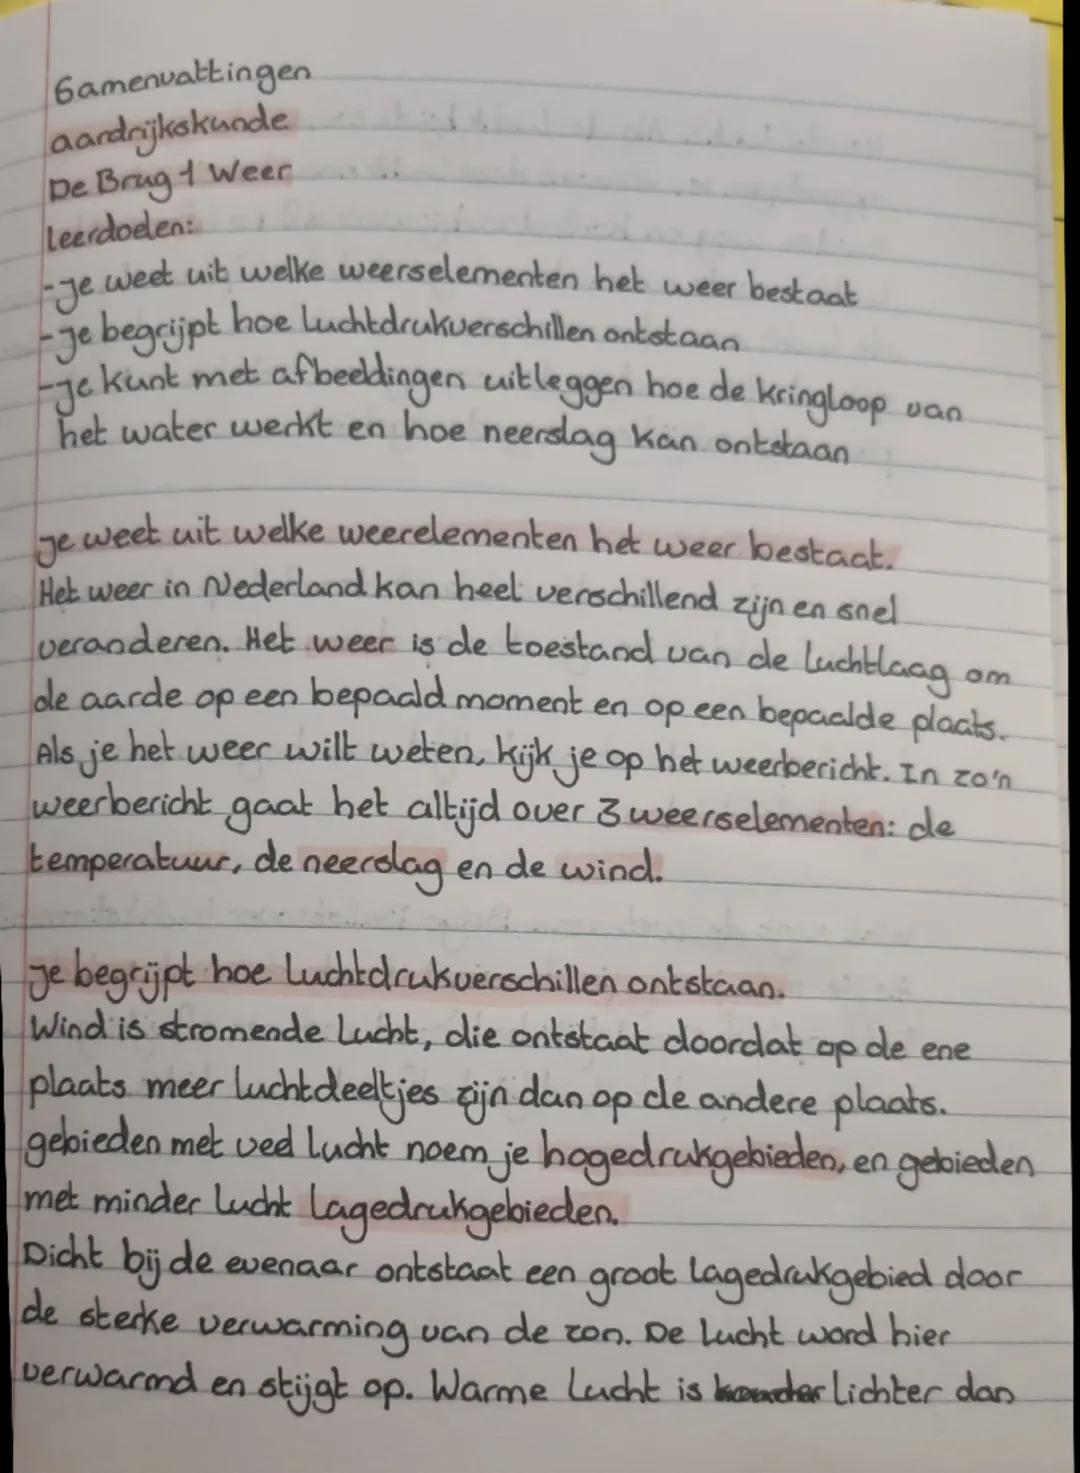 Samenvattingen
aardrijkskunde
De Brug 1 Weer
leerdoelen:
-je weet uit welke weerselementen het weer bestaat
-je begrijpt hoe luchtdrukverschillen ontstaan
-je kunt met afbeeldingen uitleggen hoe de kringloop van
het water werkt en hoe neerslag kan ontstaan
je weet uit welke weerelementen het weer bestaat.
Het weer in Nederland kan heel verschillend zijn en snel
veranderen. Het weer is de toestand van de luchtlaag om
de aarde op een bepaald moment en op een bepaalde plaats.
Als je het weer wilt weten, kijk je op het weerbericht. In zo'n
weerbericht gaat het altijd over 3 weerselementen: de
temperatuur, de neerslag en de wind.
je begrijpt hoe luchtdrukverschillen ontstaan.
Wind is stromende lucht, die ontstaat doordat op de ene
plaats meer luchtdeeltjes zijn dan op de andere plaats.
gebieden met veel lucht noem je hogedrukgebieden, en gebieden
met minder lucht lagedrukgebieden.
Dicht bij de evenaar ontstaat een groot lagedrukgebied door
de sterke verwarming van de zon. De lucht word hier
verwarmd en stijgt op. Warme lucht is lichter dan